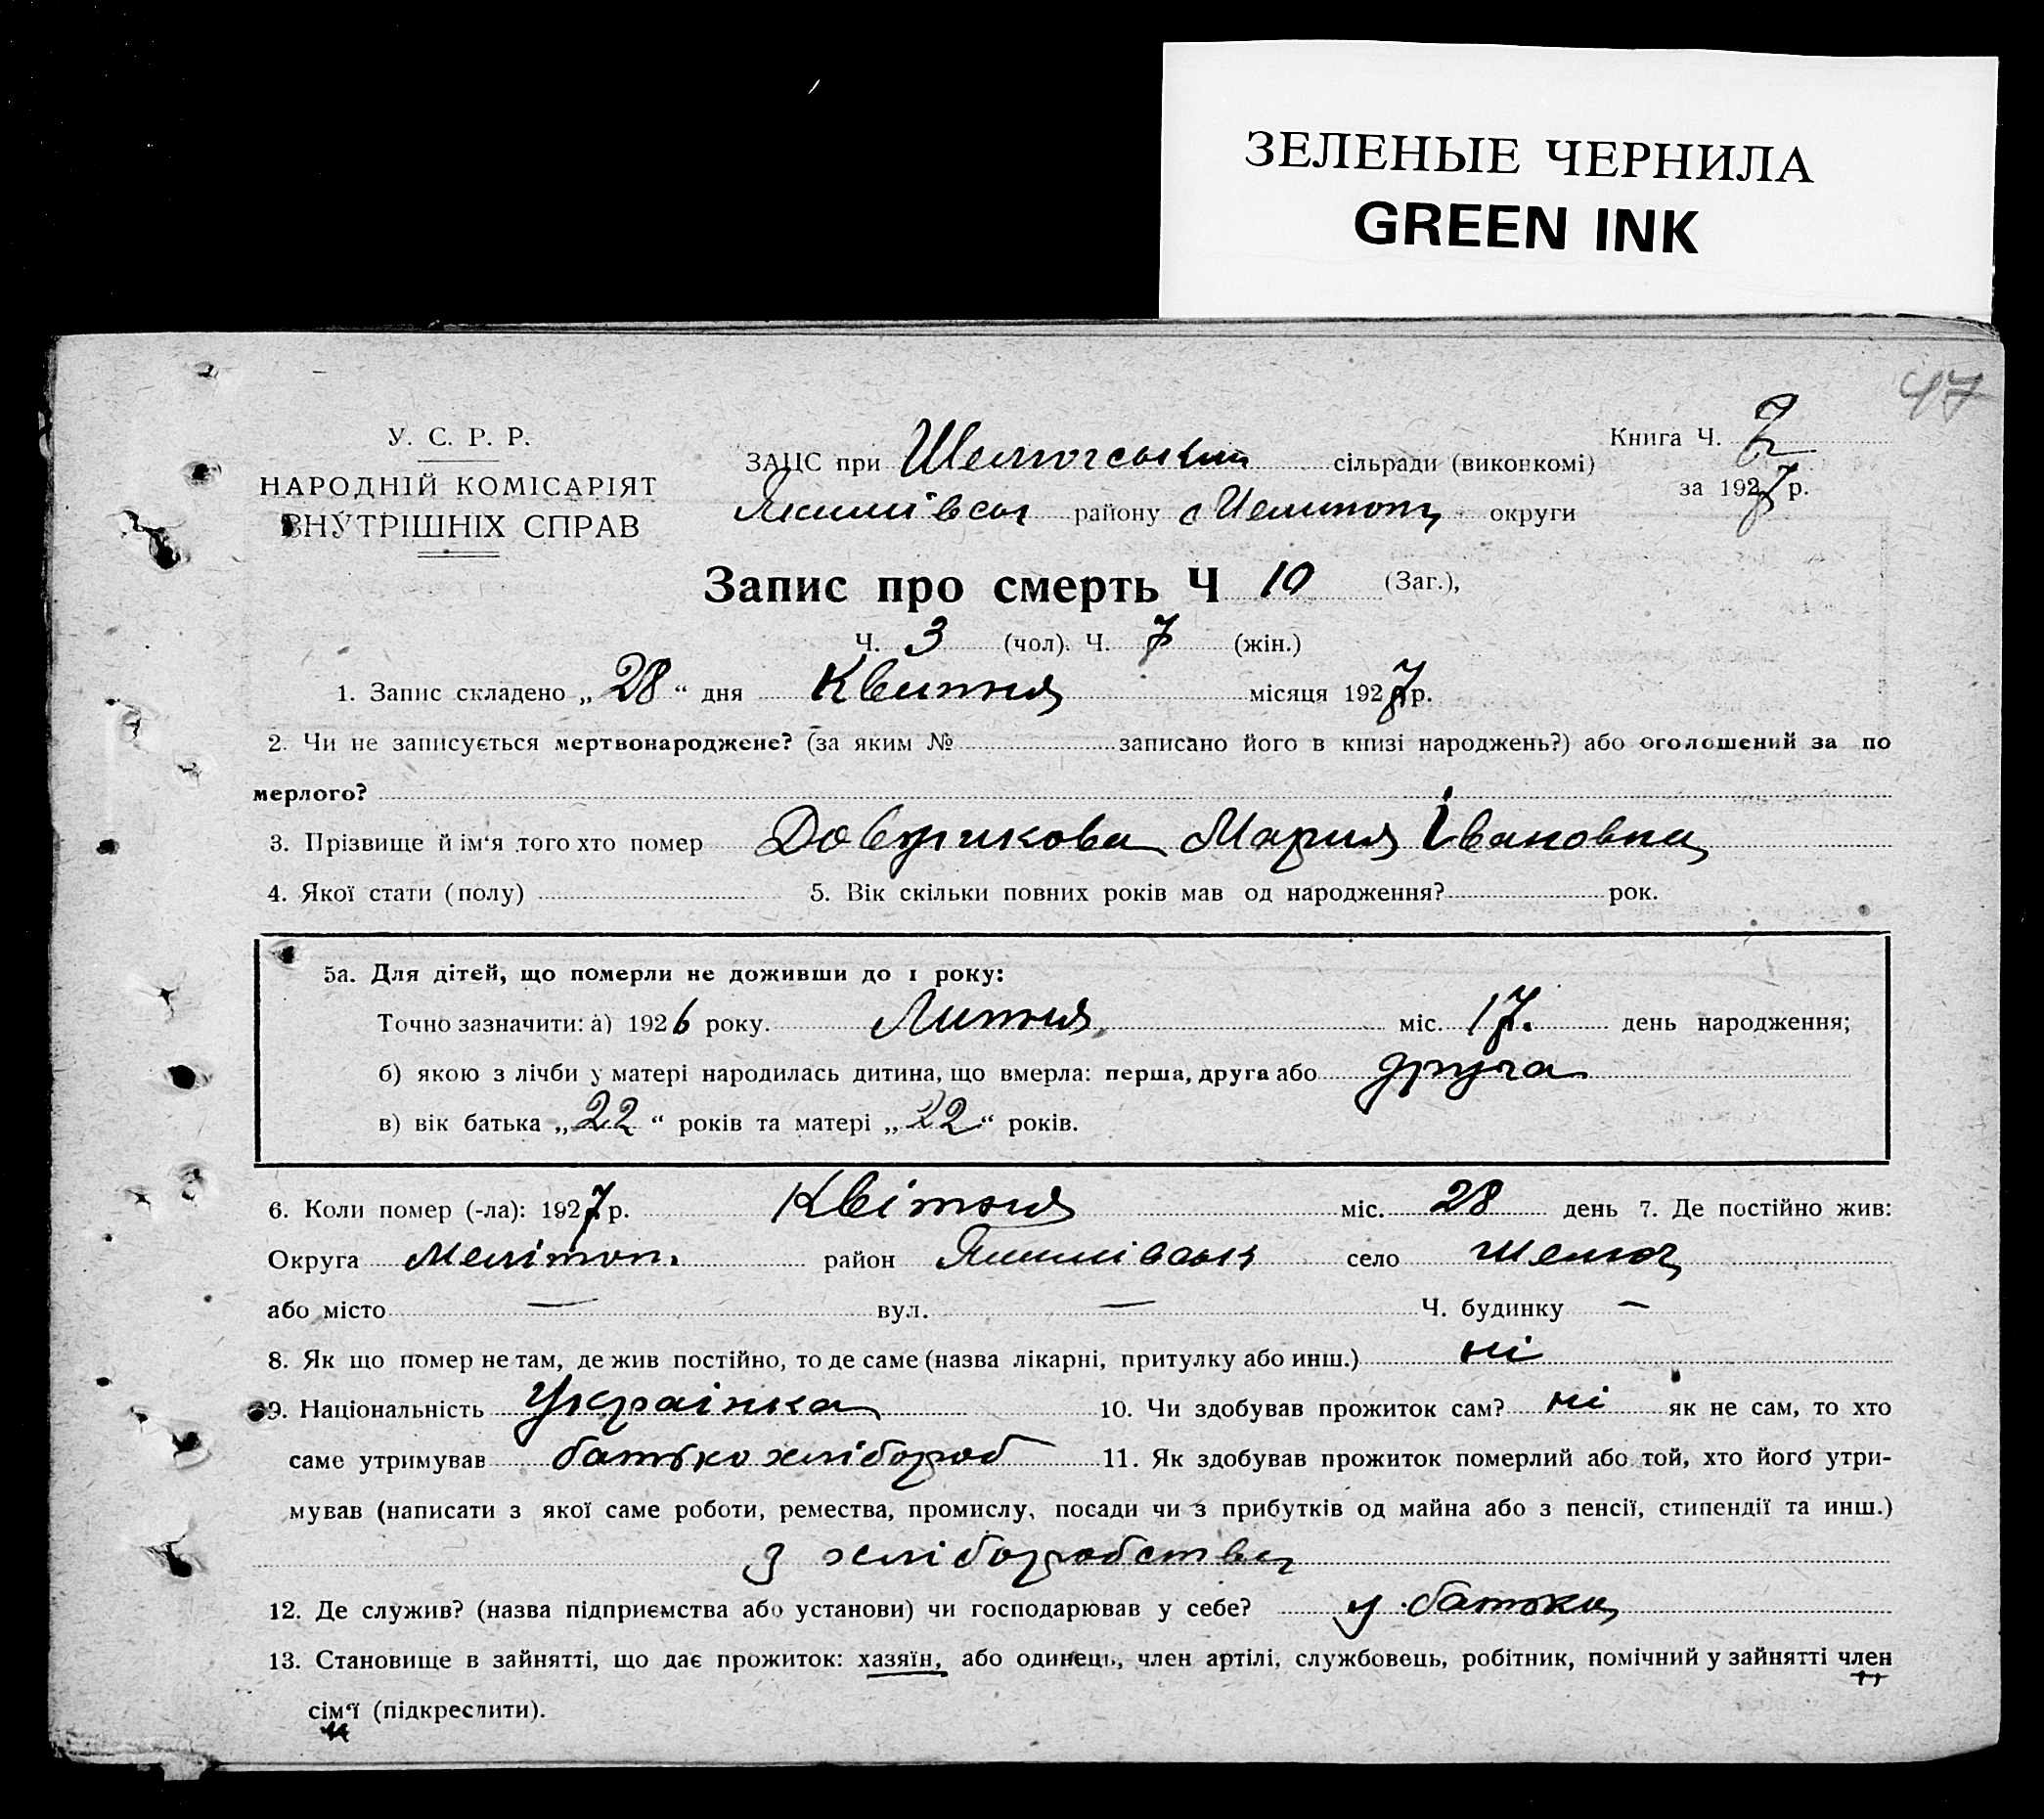 ЗЕЛЕНЫЕ ЧЕРНИЛА
GREEN INK
47
У. С. Р. Р.
НАРОДНІЙ КОМІСАРІЯТ
ВНУТРІШНІХ СПРАВ
Книга Ч. 2
за 1927 р.
ЗАЦС при сільради (виконкомі)
Якимівськ району Мелитоп округи
Запис про смерть Ч 10 (Заг.),
Ч. 3 (чол). Ч. 7 (жін.)
1. Запис складено „28“ дня Квитня місяця 1927 р.
2. Чи не записується мертвонароджене? (за яким № записано його в книзі народжень?) або оголошений за по
мерлого?
3. Прізвище й ім‘я того хто помер Мария Івановна
4. Якої стати (полу) 5. Вік скільки повних років мав од народження? рок.
5а. Для дітей, що померли не доживши до 1 року:
Точно зазначити: а) 1926 року. Липня міс. 17. день народження;
б) якою з лічби у матері народилась дитина, що вмерла: перша, друга або друга
в) вік батька „22“ років та матері „22“ років.
6. Коли помер (-ла): 1927 р. Квітня міс. 28 день 7. Де постійно жив:
Округа Мелітоп. район Якимівськ село
або місто — вул. — Ч. будинку —
8. Як що помер не там, де жив постійно, то де саме (назва лікарні, притулку або инш.) ні
9. Національність Українка 10. Чи здобував прожиток сам? ні як не сам, то хто
саме утримував батько хлібороб 11. Як здобував прожиток померлий або той, хто його утри-
мував (написати з якої саме роботи, ремества, промислу, посади чи з прибутків од майна або з пенсії, стипендії та инш.)
з хліборобства
12. Де служив? (назва підприємства або установи) чи господарював у себе? у батька
13. Становище в зайнятті, що дає прожиток: хазяїн, або одинець, член артілі, службовець, робітник, помічний у зайнятті член
сім‘ї (підкреслити).